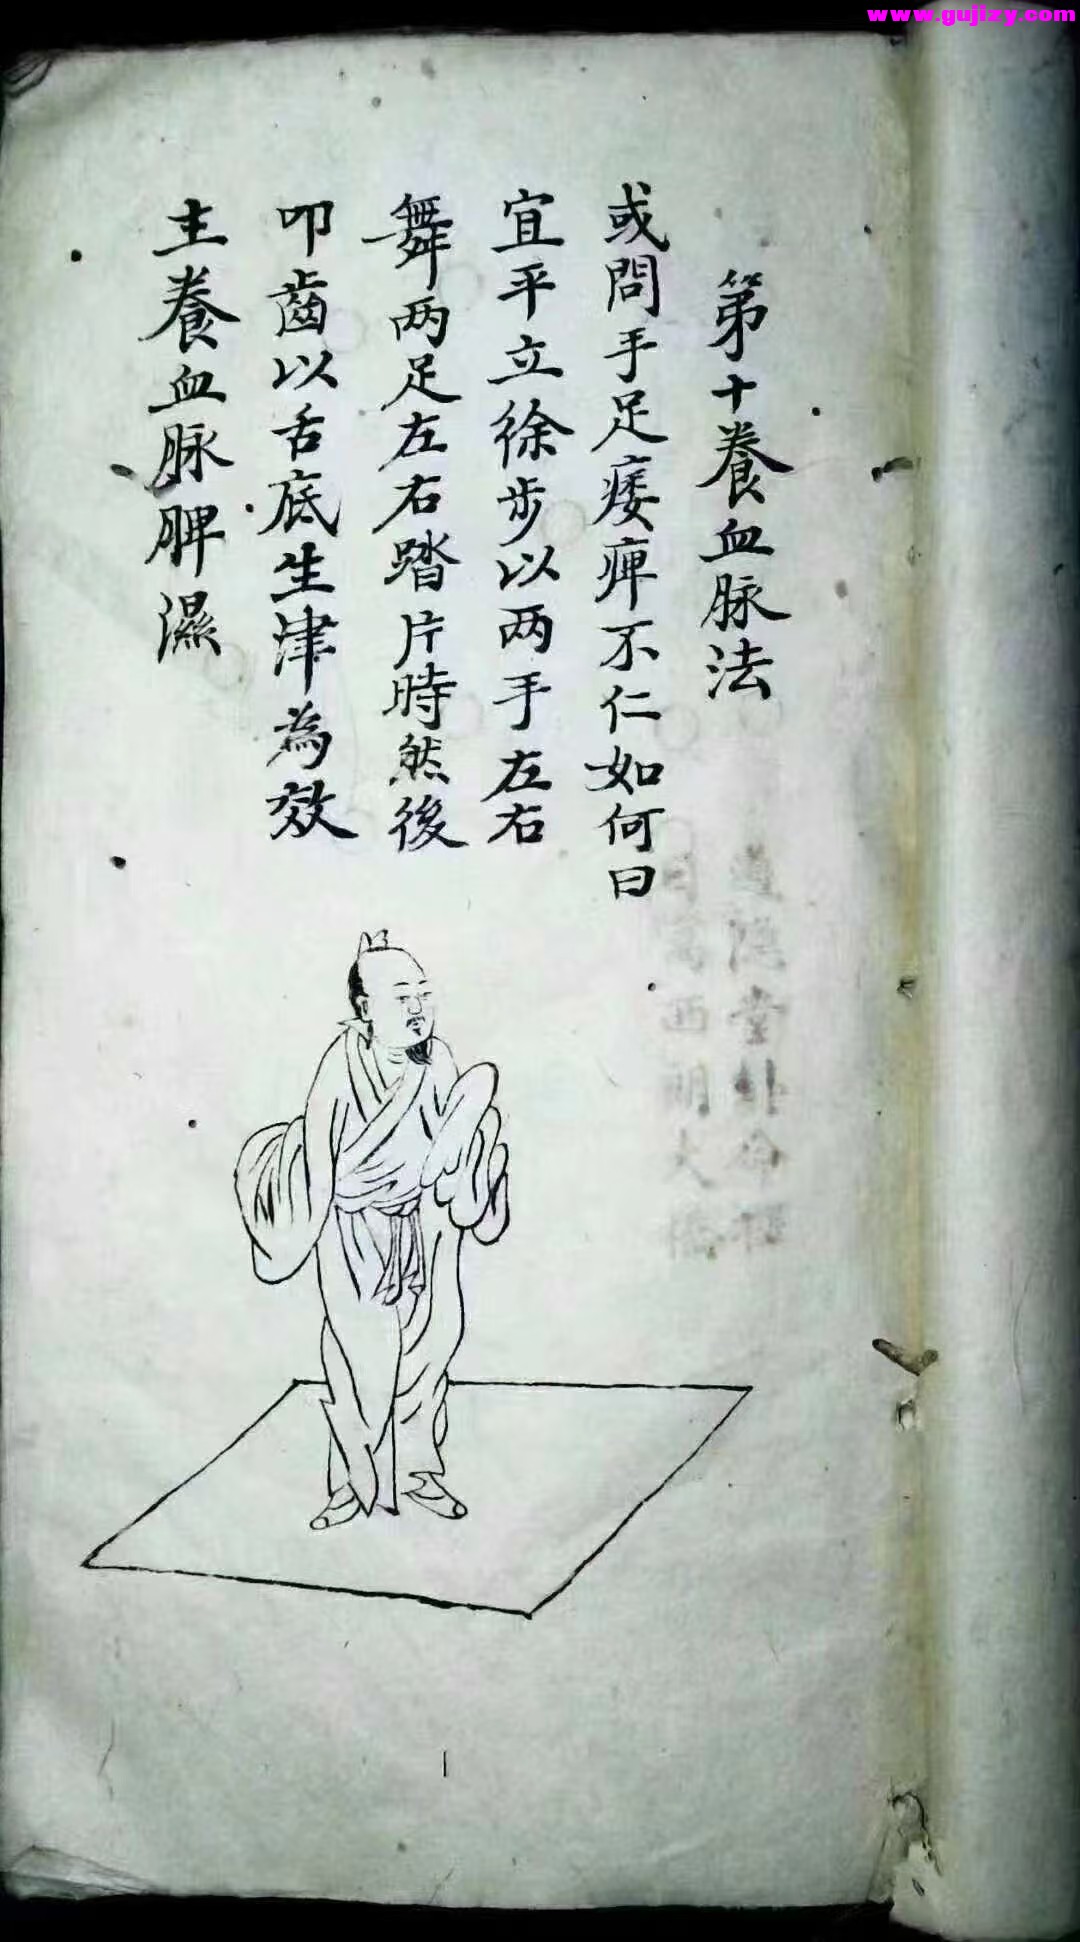 www.gujizy.com
第十養血脉法
或問手足痿痺不仁如何曰
宜平立徐步以两手左右
舞两足左右踏片時然後
叩齒以舌底生津為效
主養血脉脾濕